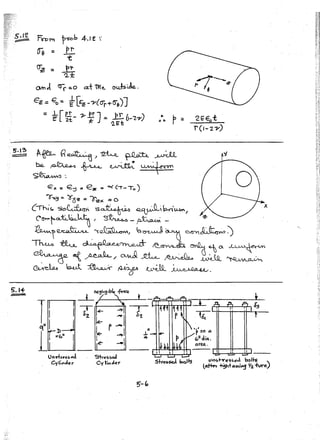 5.12 From prob 4.18:
σθ = pr/t
σz = pr/2t
and σr = 0 at the outside.
εz = ε0 = 1/E [σz - ν(σr + σθ)]
= 1/E [pr/2t - ν pr/t] = pr/2Et (1-2ν) ∴ p = 2Eε0t / r(1-2ν)
5.13 After heating, the plate will
be stress free with uniform
strains:
εx = εy = εz = α(T-T0)
γxy = γyz = γzx = 0
(This solution satisfies equilibrium,
compatibility, stress-strain-
temperature relation, boundary conditions.)
Thus the displacement consists only of a uniform
change of scale, and the circles will remain
circles but their sizes will increase.
5.14
negligible force
Unstressed
Cylinder
Stressed
Cylinder
Stressed bolts
p on a
6" dia.
area.
unstressed bolts
(after tightening ½ turn)
5-6